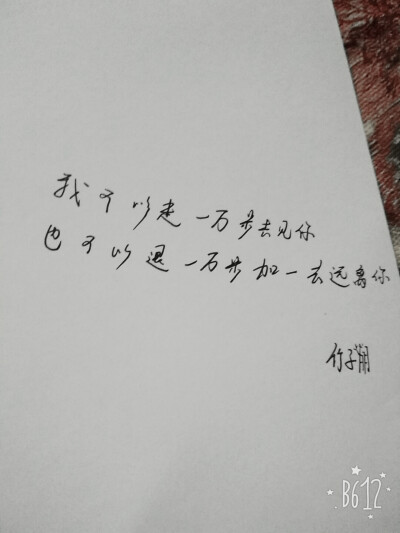 我可以走一万步去见你
也可以退一万步加一去远离你
B612